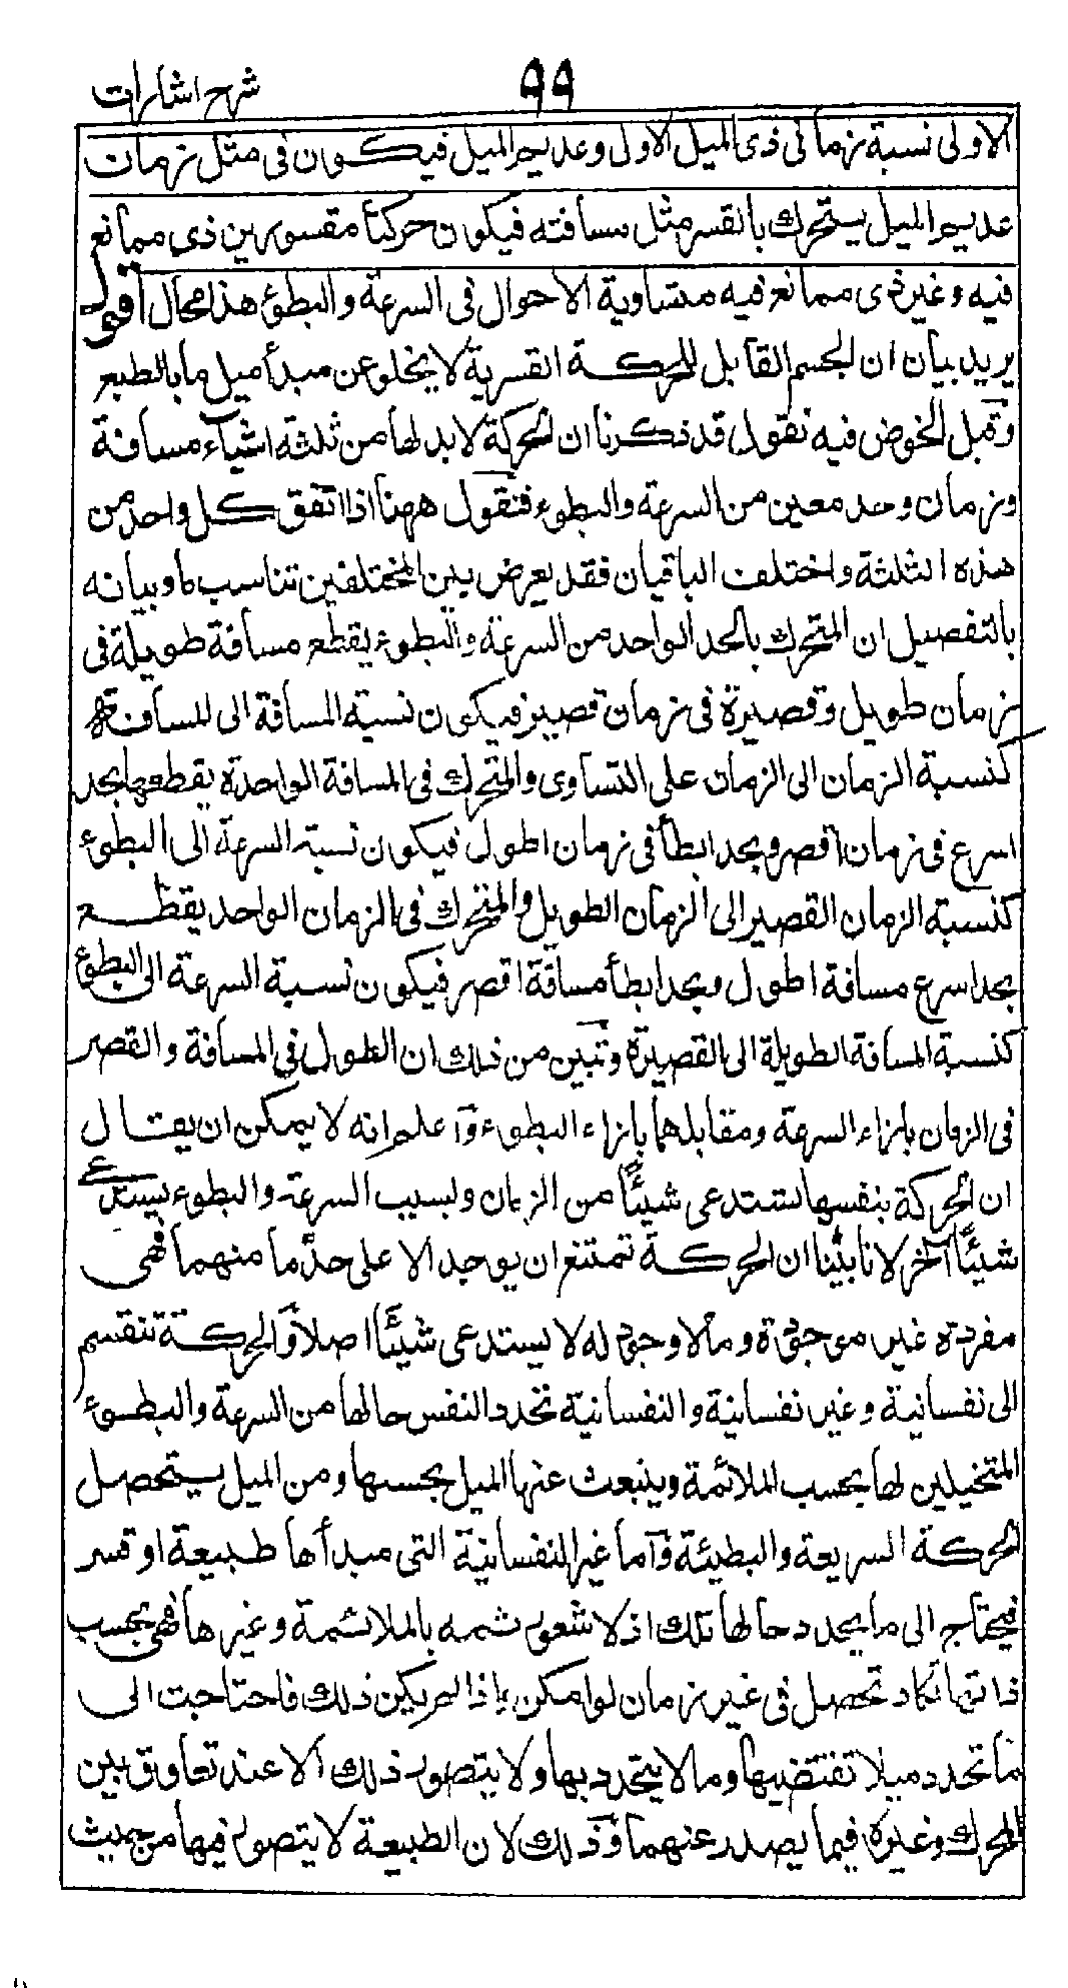 شرح اشارات
٩٩
الاولى نسبة زما في ذي الميل الاول وعديم الميل فيكون في مثل زمان
عديم الميل يتحرك بالقسر مثل مسافته فيكون حركتا مقسورين ذى ممانع
فيه وغير ذى ممانع فيه متساوية الاحوال في السرعة والبطوء هذا محال اقول
يريد بيان ان الجسم القابل للحركة القسرية لا يخلو عن مبدأ ميل ما بالطبع
وقبل الخوض فيه نقول قد ذكرنا ان الحركة لا بد لها من ثلثة اشياء مسافة
وزمان وحد معين من السرعة والبطوء فنقول ههنا اذا اتفق كل واحد من
هذه الثلثة واختلف الباقيان فقد يعرض بين المختلفين تناسب ما وبيانه
بالتفصيل ان المتحرك بالحد الواحد من السرعة والبطوء يقطع مسافة طويلة في
زمان طويل وقصيرة في زمان قصير فيكون نسبة المسافة الى المسافة
كنسبة الزمان الى الزمان على التساوى والمتحرك في المسافة الواحدة يقطعها بحد
اسرع في زمان اقصر وبحد ابطأ في زمان اطول فيكون نسبة السرعة الى البطوء
كنسبة الزمان القصير الى الزمان الطويل والمتحرك في الزمان الواحد يقطع
بحد اسرع مسافة اطول وبحد ابطأ مسافة اقصر فيكون نسبة السرعة الى البطوء
كنسبة المسافة الطويلة الى القصيرة وتبين من ذلك ان الطول في المسافة والقصر
في الزمان بازاء السرعة ومقابلهما بازاء البطوء واعلم انه لا يمكن ان يقال
ان الحركة بنفسها تستدعى شيئا من الزمان ولسبب السرعة والبطوء يستدعى
شيئا آخر لانا بينا ان الحركة تمتنع ان يوجد الا على حد ما منهما فهى
مفردة غير موجودة وما لا وجود له لا يستدعى شيئا اصلا والحركة تنقسم
الى نفسانية وغير نفسانية والنفسانية تحدد النفس حالها من السرعة والبطوء
المتخيلين لها بحسب الملائمة وينبعث عنها الميل بحسبها ومن الميل يتحصل
الحركة السريعة والبطيئة واما غير النفسانية التى مبدأها طبيعة او قسر
فيحتاج الى ما يحدد حالها تلك اذ لا شعور ثمه بالملائمة وغيرها فهى بحسب
ذاتها تكاد تحصل في غير زمان لو امكن واذا لم يكن ذلك فاحتاجت الى
ما تحدد ميلا تقتضيها وما لا يتحدد بها ولا يتصور ذلك الا عند تعاوق بين
المحرك وغيره فيما يصدر عنهما وذلك لان الطبيعة لا يتصور فيها من حيث